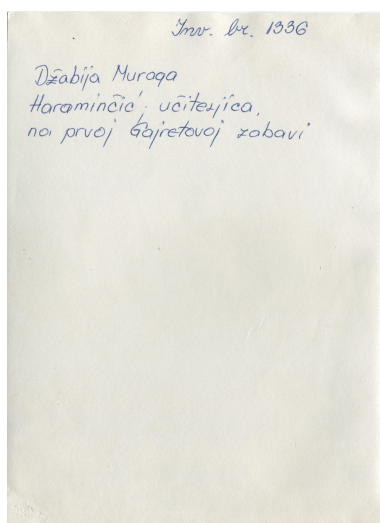 Inv. br. 1336
Džabija Muroga
Haraminčić, učiteljica,
na prvoj Gajretovoj zabavi